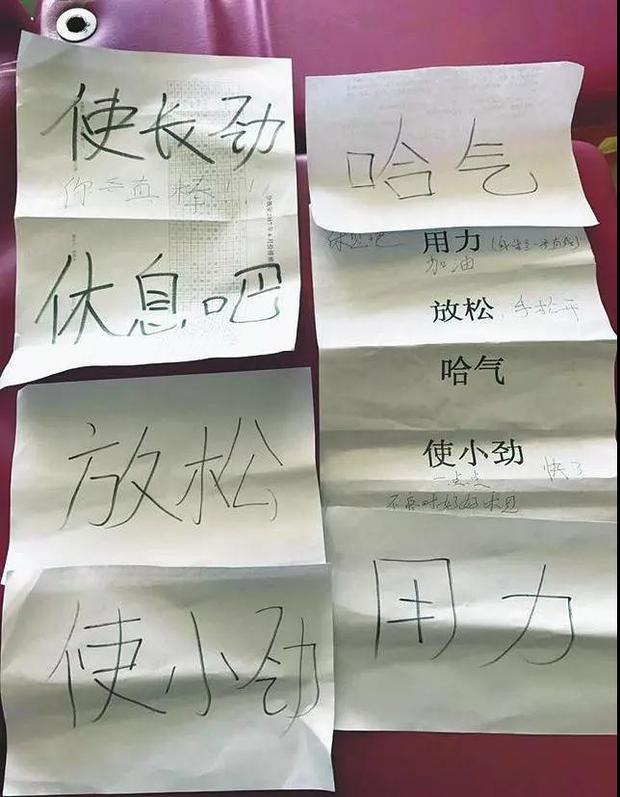 使长劲
你手真棒！！！
休息吧
放松
使小劲
哈气
休息吧 用力
加油
放松 手松开
哈气
使小劲
一点点 快了
不要时好好休息
用力